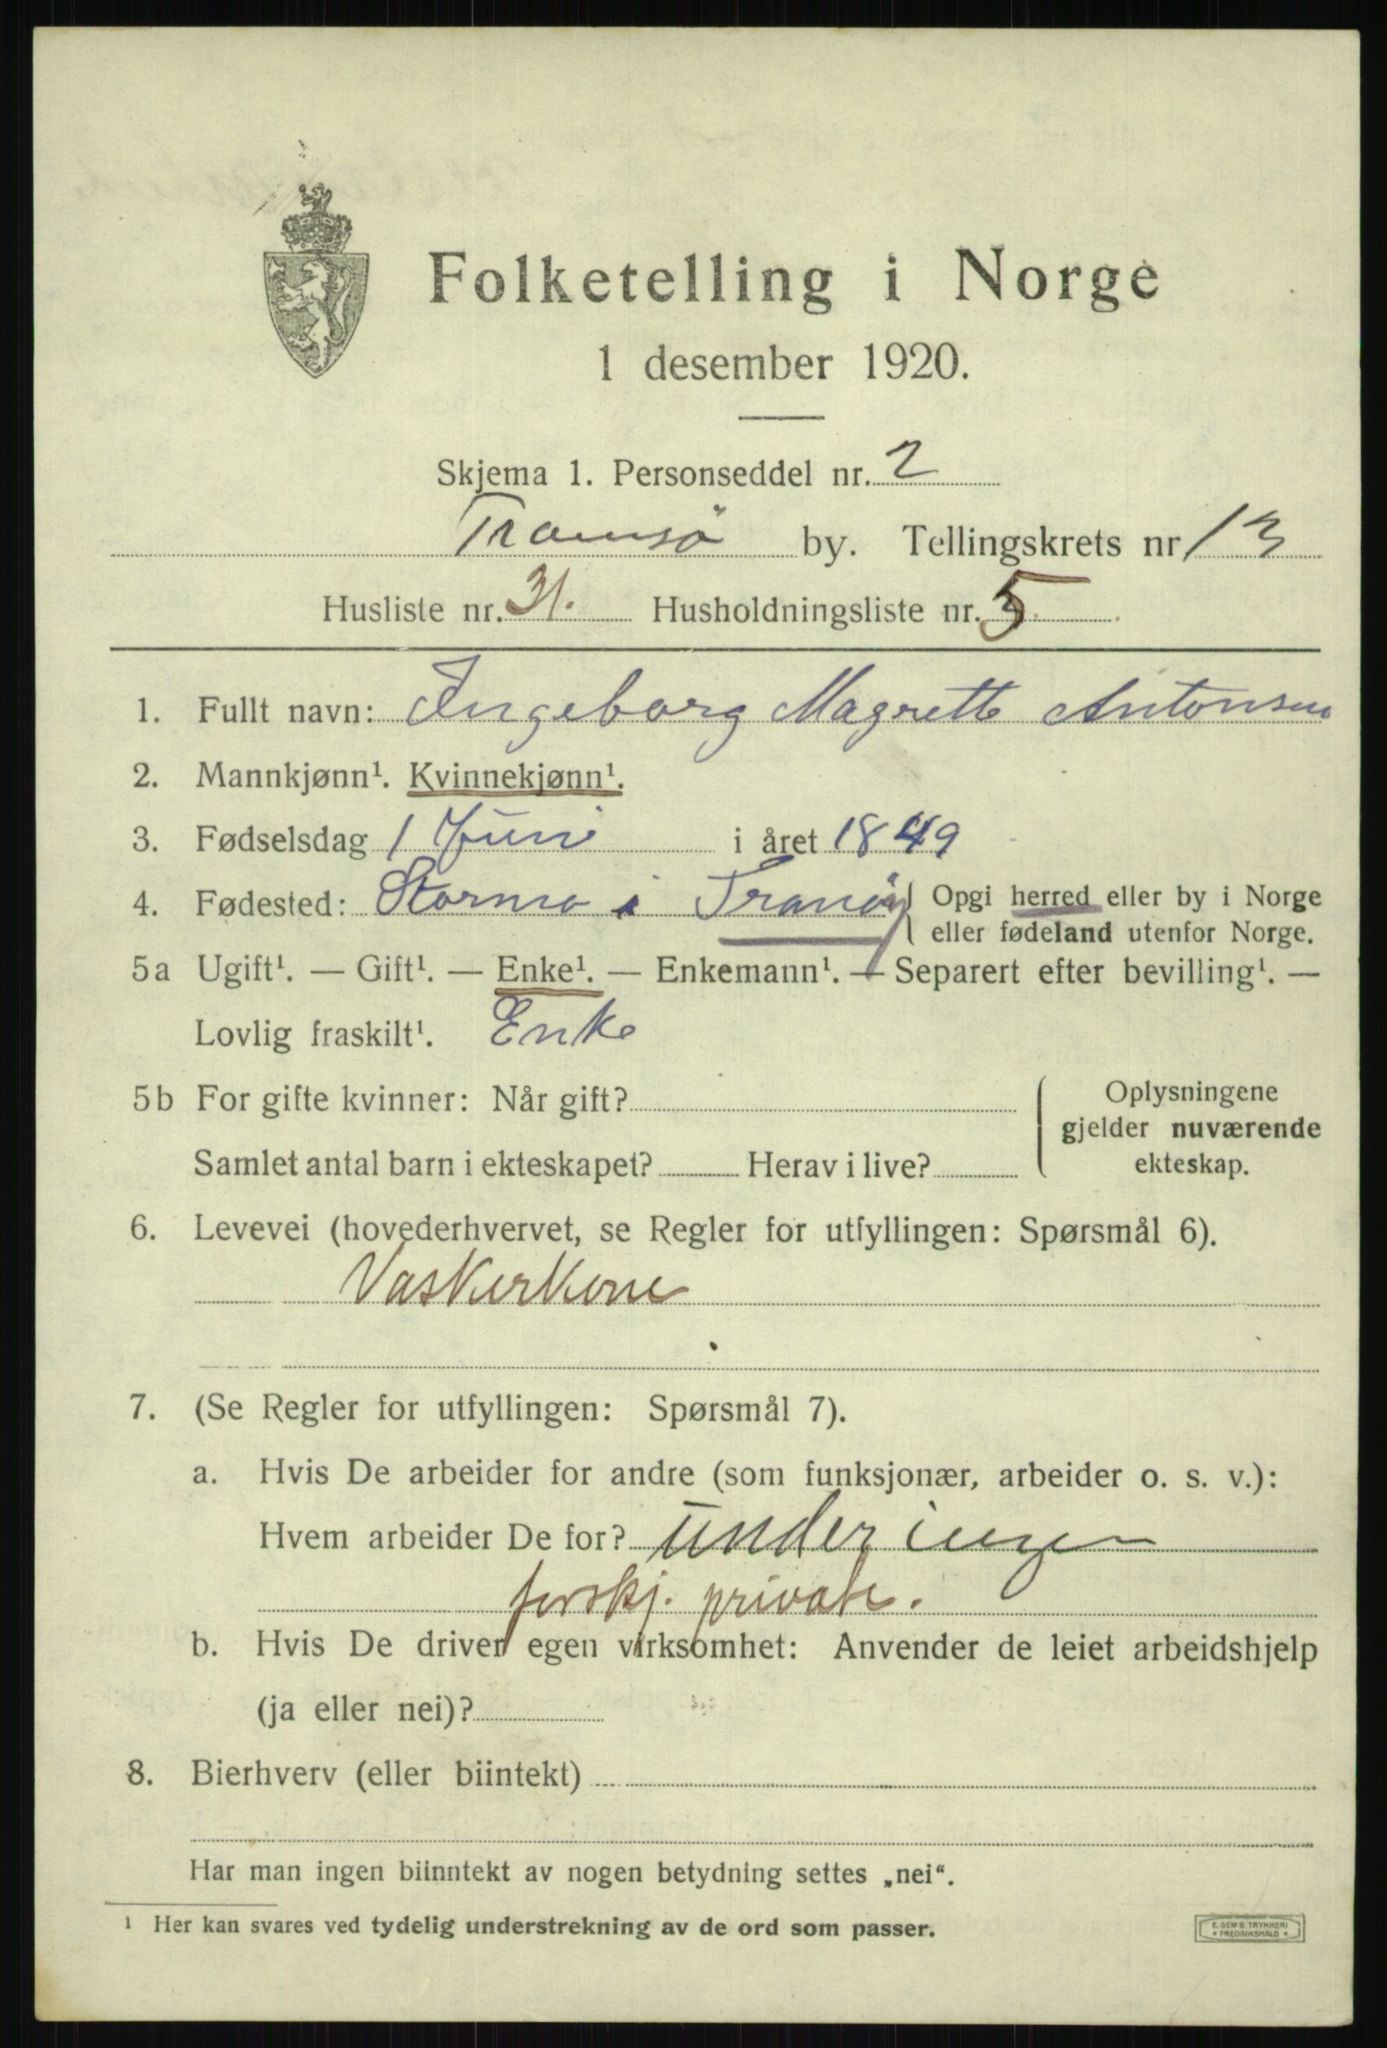 Folketelling i Norge
1 desember 1920.
Skjema 1. Personseddel nr. 2
Tromsø by. Tellingskrets nr 13
Husliste nr. 31. Husholdningsliste nr. 5.
1. Fullt navn: Ingeborg Magrette Antonsen
2. Mannkjønn¹. Kvinnekjønn¹.
3. Fødselsdag 1 Juni i året 1849
4. Fødested: Stormo i Tranöy Opgi herred eller by i Norge
eller fødeland utenfor Norge.
5a Ugift¹. — Gift¹. — Enke¹. — Enkemann¹. — Separert efter bevilling¹. —
Lovlig fraskilt¹. Enke
5b For gifte kvinner: Når gift? Oplysningene
gjelder nuværende
Samlet antal barn i ekteskapet? Herav i live? ekteskap.
6. Levevei (hovederhvervet, se Regler for utfyllingen: Spørsmål 6).
Vaskerkone
7. (Se Regler for utfyllingen: Spørsmål 7).
a. Hvis De arbeider for andre (som funksjonær, arbeider o. s. v.):
Hvem arbeider De for? under ingen
forskj. private.
b. Hvis De driver egen virksomhet: Anvender de leiet arbeidshjelp
(ja eller nei)?
8. Bierhverv (eller biintekt)
Har man ingen biinntekt av nogen betydning settes „nei“.
1 Her kan svares ved tydelig understrekning av de ord som passer.
E. SEM'S TRYKKERI
* FREDRIKSHALD *